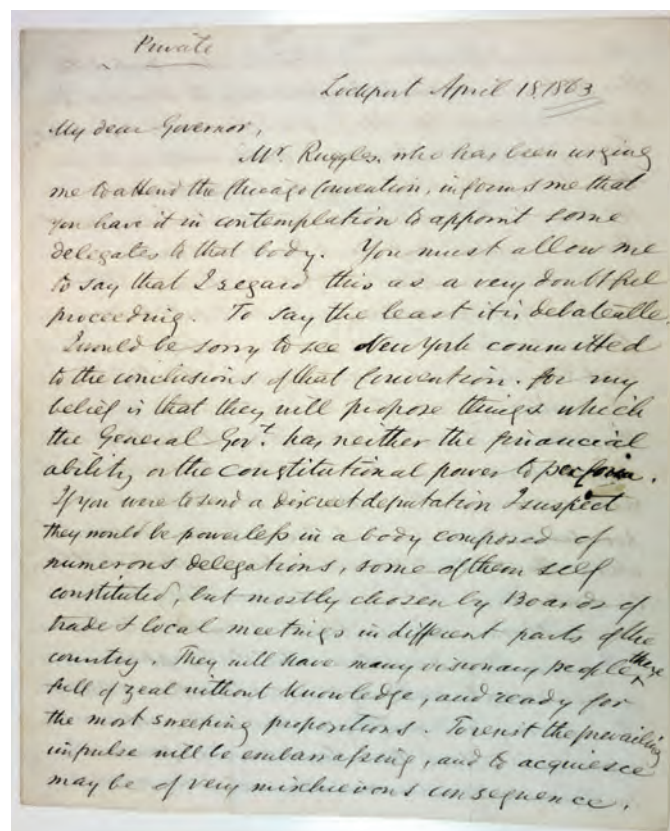 Private
Lockport April 18, 1863
My dear Governor,
Mr. Ruggles, who has been urging
me to attend the Chicago Convention, informs me that
you have it in contemplation to appoint some
delegates to that body. You must allow me
to say that I regard this as a very doubtful
proceeding. To say the least it is debateable
I would be sorry to see New York committed
to the conclusions of that Convention. for my
belief is that they will propose things which
the General Govt. has neither the financial
ability or the constitutional power to perform.
If you were to send a discreet deputation I suspect
they would be powerless in a body composed of
numerous delegations, some of them self
constituted, but mostly chosen by Boards of
trade & local meetings in different parts of the
country. They will have many visionary people there
full of zeal without knowledge, and ready for
the most sweeping propositions. To resist the prevailing
impulse will be embarrassing, and to acquiesce
may be of very mischievous consequence.